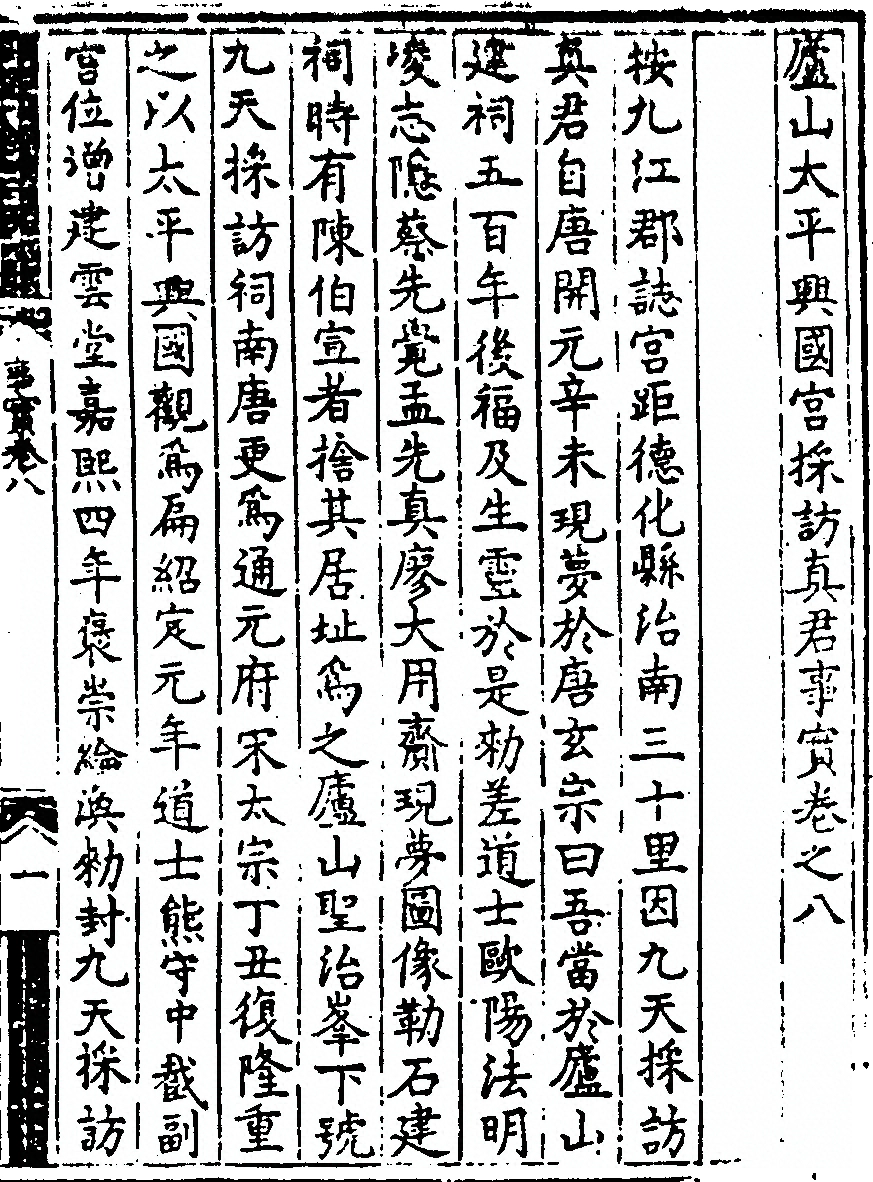 廬山太平興國宮採訪真君事實卷之八
按九江郡誌宮距德化縣治南三十里因九天採訪
真君自唐開元辛未現夢於唐玄宗曰吾當於廬山
建祠五百年後福及生靈於是勑差道士歐陽法明
凌志隱蔡先覺孟先真廖大用齎現夢圖像勒石建
祠時有陳伯宣者捨其居址為之廬山聖治峯下號
九天採訪祠南唐更為通元府宋太宗丁丑復隆重
之以太平興國觀為扁紹定元年道士熊守中戱副
宮位增建雲堂嘉熙四年褒崇綸渙勑封九天採訪
事實卷八
八 一